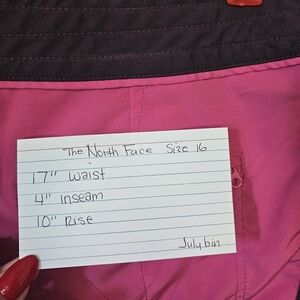 The North Face Size 16
17" Waist
4" Inseam
10" Rise
July bin